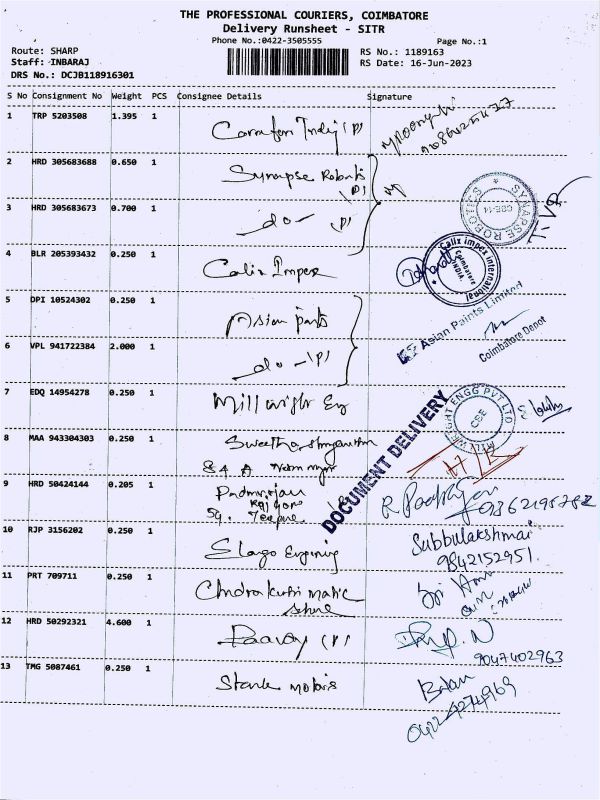 THE PROFESSIONAL COURIERS, COIMBATORE
Delivery Runsheet - SITR
Phone No.:0422-3505555 Page No.:1
Route: SHARP RS No.: 1189163
Staff: INBARAJ RS Date: 16-Jun-2023
DRS No.: DCJB118916301
S No Consignment No Weight PCS Consignee Details Signature
1 TRP 5203508 1.395 1 (P)
2 HRD 305683688 0.650 1 Synapse Robotis (P)
SYNAPSE ROBOTICS CBE-14
3 HRD 305683673 0.700 1 - do - (P)
4 BLR 205393432 0.250 1 Calix Impex
Calix impex international Coimbatore INDIA
5 DPI 10524302 0.250 1 Asian paits
Asian Paints Limited
Coimbatore Depot
6 VPL 941722384 2.000 1 - do - (P)
7 EDQ 14954278 0.250 1 Mill wright Eng
MILL WRIGHT ENGG PVT LTD CBE
DOCUMENT DELIVERY
8 MAA 943304303 0.250 1
9 HRD 50424144 0.205 1 Padmarajan
R Padhjan
10 RJP 3156202 0.250 1 Elago
Subbulakshmai
9842152951.
11 PRT 709711 0.250 1 Chndrakathi matic
12 HRD 50292321 4.600 1 Paavay (P)
9047402963
13 TMG 5087461 0.250 1 Stank motors
Balan